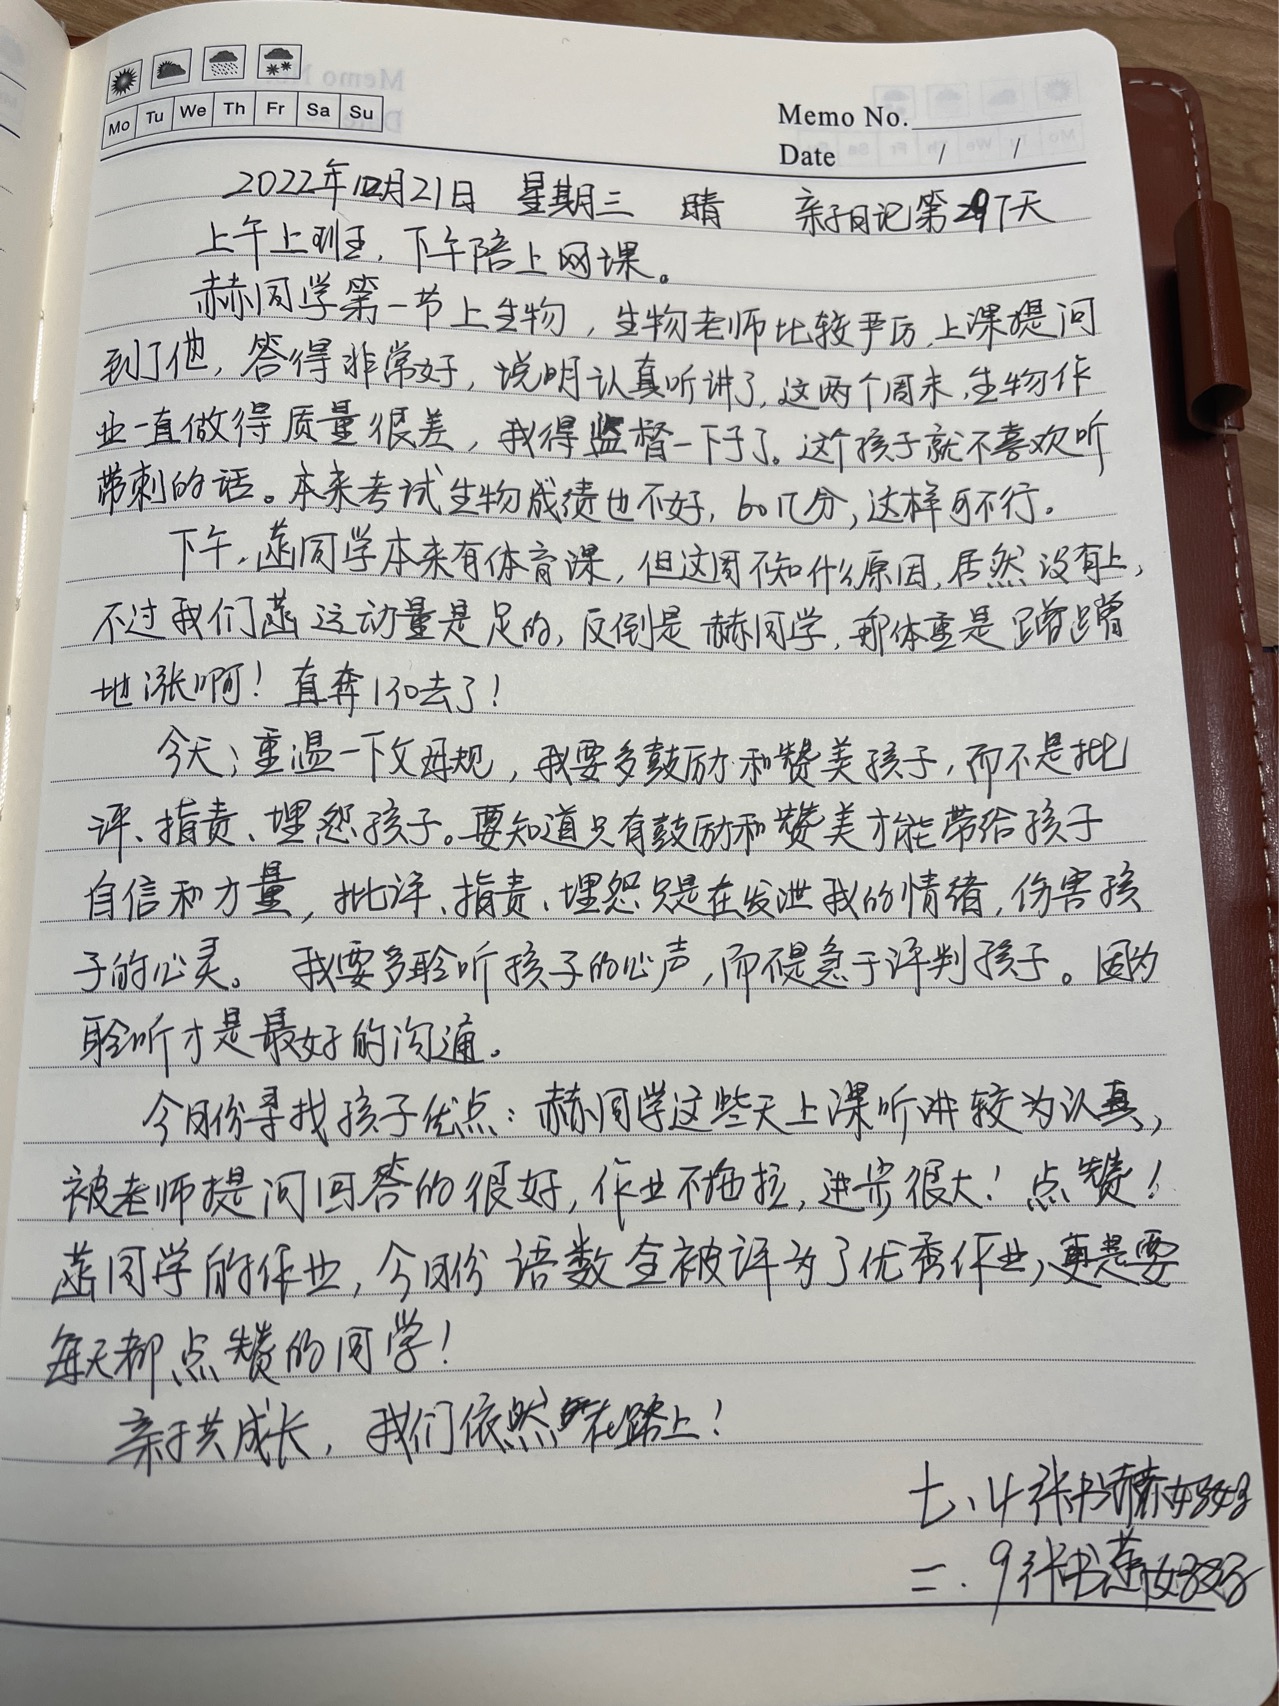 Mo Tu We Th Fr Sa Su
Memo No.
Date / /
2022年12月21日 星期三 晴 亲子日记第297天
上午上班，下午陪上网课。
赫同学第一节上生物，生物老师比较严厉，上课提问
到了他，答得非常好，说明认真听讲了，这两个周末，生物作
业一直做得质量很差，我得监督一下子了。这个孩子就不喜欢听
带刺的话。本来考试生物成绩也不好，60几分，这样可不行。
下午，菡同学本来有体育课，但这周不知什么原因，居然没有上，
不过我们菡运动量是足的，反倒是赫同学，那体重是蹭蹭
地涨啊！直奔130去了！
今天；重温一下父母规，我要多鼓励和赞美孩子，而不是批
评、指责、埋怨孩子。要知道只有鼓励和赞美才能带给孩子
自信和力量，批评、指责、埋怨只是在发泄我的情绪，伤害孩
子的心灵。 我要多聆听孩子的心声，而不是急于评判孩子。因为
聆听才是最好的沟通。
今日份寻找孩子优点：赫同学这些天上课听讲较为认真，
被老师提问回答的很好，作业不拖拉，进步很大！点赞！
菡同学的作业，今日份语数全被评为了优秀作业，更是要
每天都点赞的同学！
亲子共成长，我们依然在路上！
七、4 张书赫妈妈
二．9 张书菡妈妈